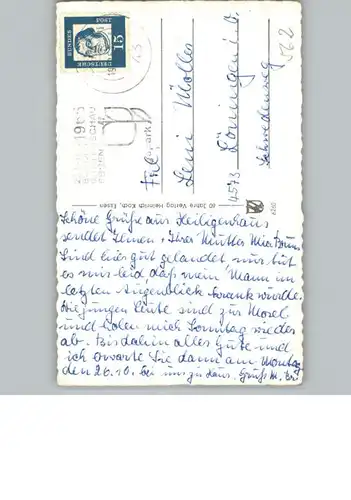 15
DEUTSCHE
BUNDES
POST
1965
ESSEN
Frl.
Leni Möller
4573 Löningen i. O.
Schwedenweg
522
60 Jahre Verlag Heinrich Koch, Essen
Schöne Grüße aus Heiligenhaus
sendet Ihnen, Ihrer Mutter
Sind hier gut gelandet nur tut
es mir leid daß mein Mann im
letzten Augenblick krank wurde.
Die jungen Leute sind zur Mosel
und holen mich Sonntag wieder
ab. Bis dahin alles Gute und
ich erwarte Sie dann am Montag
den 26.10. bei uns zu Haus. Gruß